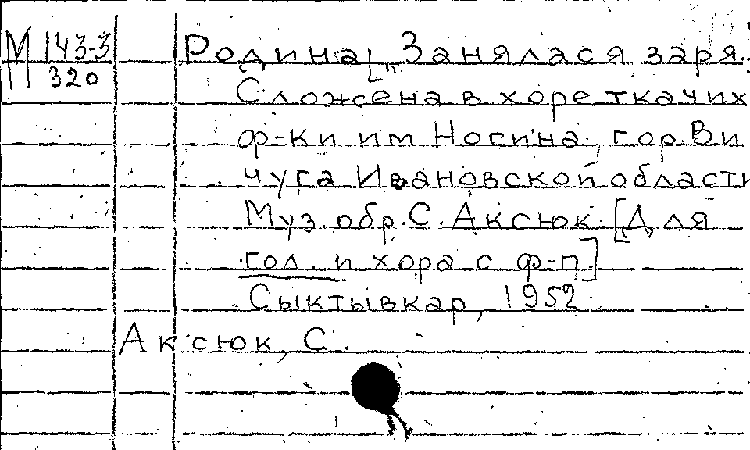 М 143-3
320
Родина. „Занялася заря.
Сложена в хоре ткачих
ф-ки им Носина, гор. Ви
чуга Ивановской области
Муз. обр. С. Аксюк. [Для
гол. и хора с ф-п]
Сыктывкар, 1952
Аксюк, С.